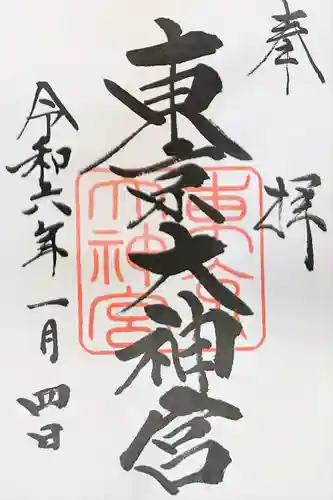 奉拝
東京大神宮
東京大神宮
令和六年一月四日